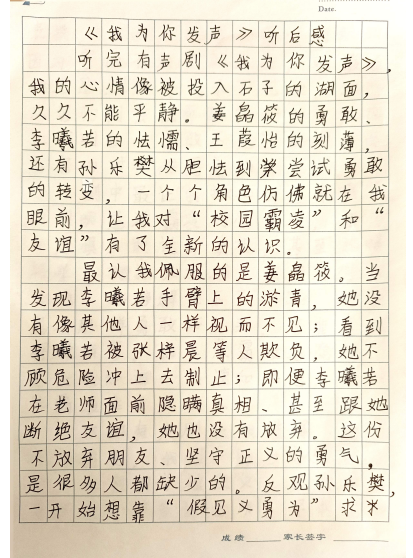 Date.
《我为你发声》听后感
听完有声剧《我为你发声》,
我的心情像被投入石子的湖面,
久久不能平静。姜磊筱的勇敢、
李曦若的怯懦、王葭怡的刻薄,
还有孙乐樊从胆怯到荣尝试勇敢
的转变,一个个角色仿佛就在我
眼前,让我对“校园霸凌”和“
友谊”有了全新的认识。
最认我佩服的是姜磊筱。当
发现李曦若手臂上的淤青,她没
有像其他人一样视而不见;看到
李曦若被张梓晨等人欺负,她不
顾危险冲上去制止;即便李曦若
在老师面前隐瞒真相、甚至跟她
断绝友谊,她也没有放弃。这份
不放弃朋友、坚守正义的勇气,
是很多人都缺少的。反观孙乐樊,
一开始想靠“假见义勇为”求求
成绩 家长签字